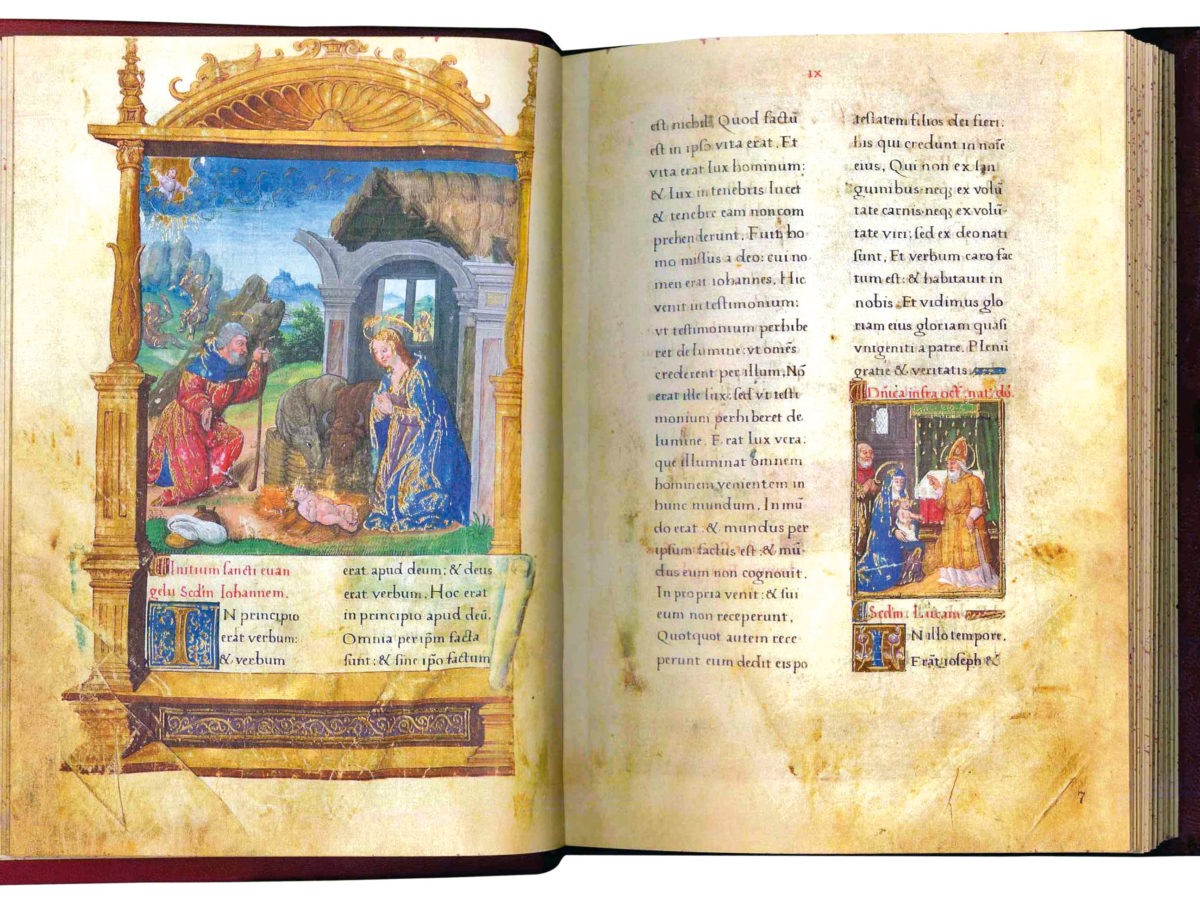 Initium sancti euan
gelii Scdm̄ Iohannem.
IN principio
erat verbum:
& verbum
erat apud deum; & deus
erat verbum. Hoc erat
in principio apud deū.
Omnia per ip̄m facta
sunt: & sine ip̄o factum
IX
est nichil Quod factū
est in ipso vita erat. Et
vita erat lux hominum:
& lux in tenebris lucet
& tenebre eam non com
prehenderunt. Fuit ho
mo missus a deo: cui no
men erat iohannes. Hic
venit in testimonium:
vt testimonium perhibe
ret de lumine: vt om̄es
crederent per illum. Nō
erat ille lux: sed vt testi
monium perhiberet de
lumine. Erat lux vera:
que illuminat omnem
hominem venientem in
hunc mundum. In mū
do erat: & mundus per
ipsum factus est: & mū
dus eum non cognouit.
In propria venit: & sui
eum non receperunt.
Quotquot autem rece
perunt eum dedit eis po
testatem filios dei fieri:
his qui credunt in noīe
eius, Qui non ex san
guinibus neq; ex volū
tate carnis neq; ex volū-
tate viri; sed ex deo nati
sunt. Et verbum caro fac
tum est: & habitauit in
nobis. Et vidimus glo
riam eius gloriam quasi
vnigeniti a patre. Plenū
gratie & veritatis
Dn̄ica infra oct. nat. dō.
Scdm̄. Lucam
IN illo tempore.
Erāt ioseph &
7